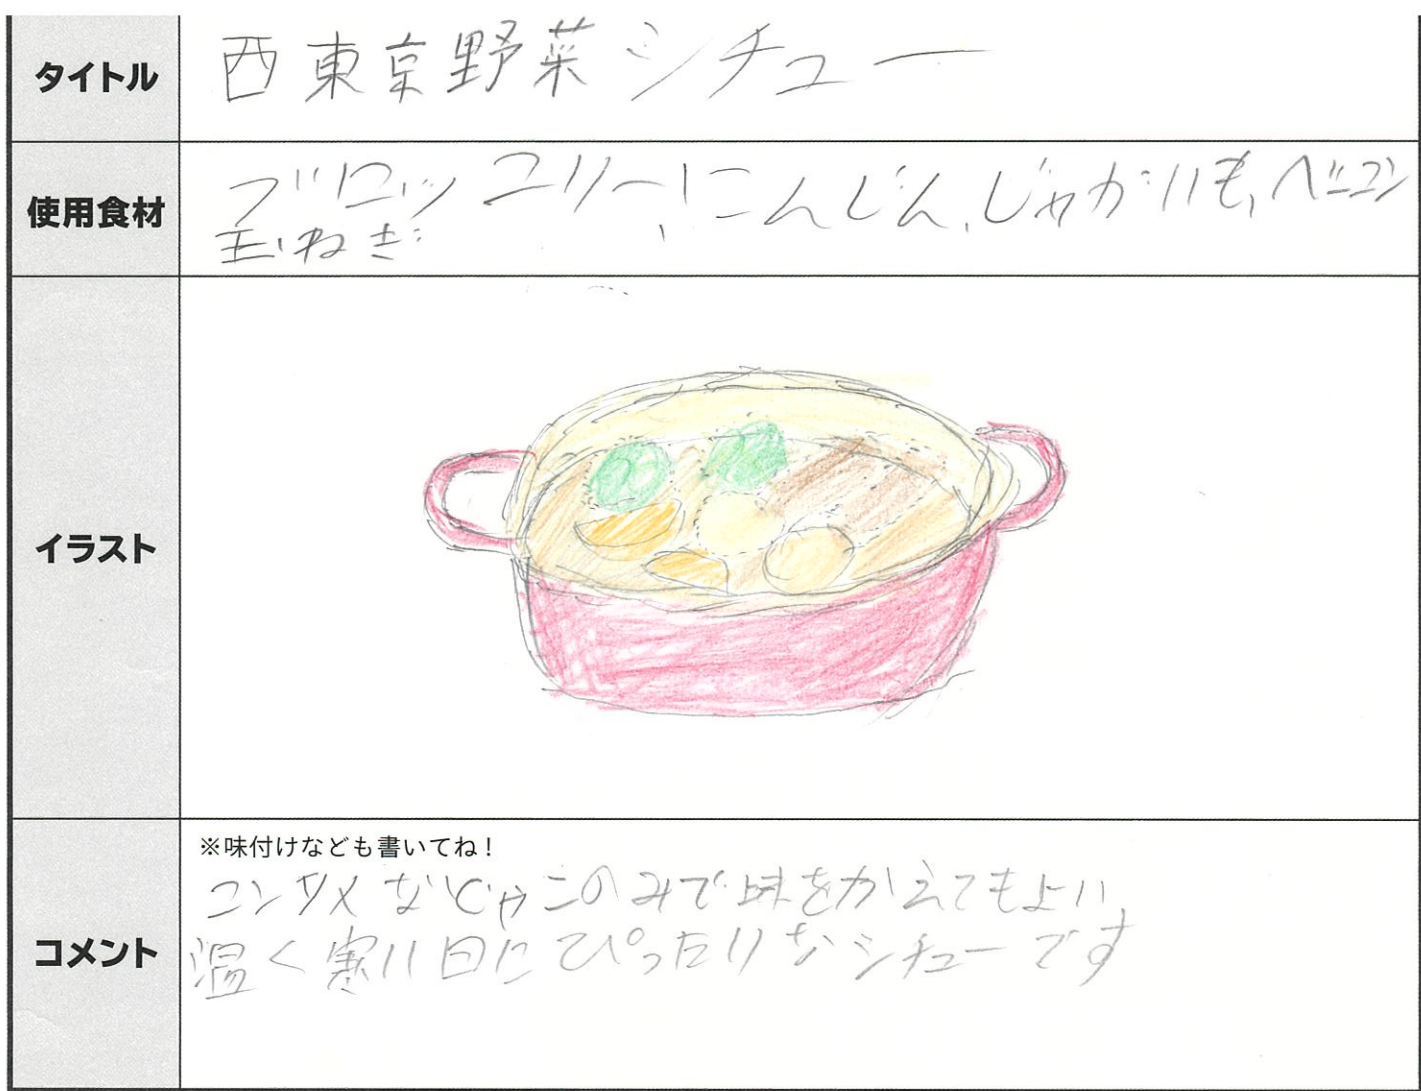 タイトル
西東京野菜シチュー
使用食材
ブロッコリー、にんじん、じゃがいも、ベーコン
玉ねぎ
イラスト
コメント
※味付けなども書いてね！
コンソメなどやこのみで味をかえてもよい
温く寒い日にぴったりなシチューです